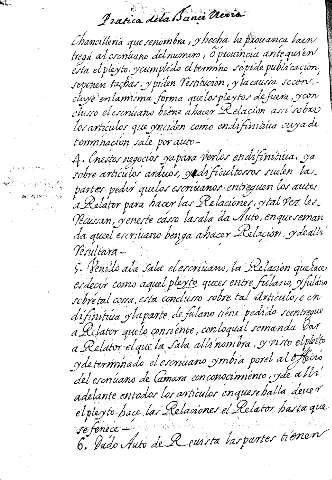 Pratica de la Chanci llería
Chancilleria que se nombra, y hecha la provança la en
trega al escrivano del numero, o provincia ante quien
esta el pleyto, y cumplido el termino se pide publicacion,
se ponen tachas, y piden restitución, y la causa se con
cluye en la misma forma que los pleytos de fuera, y con
cluso el escrivano biene a hacer Relacion assi sobre
los articulos que ynciden como en difinitiva cuya de
terminacion sale por auto—
4. En estos negocios ya para verlos en difinitiva, ya
sobre articulos arduos, y dificultosos suelen las
partes pedir que los escrivanos entreguen los autos
a Relator para hacer las Relaciones, y tal vez les
recusan, y en este caso la sala da Auto, en que se man
da que el escrivano benga a hacer Relacion, y de alli
resultara—
5. Venido a la Sala el escrivano, la Relación que hace
es decir como aquel pleyto que es entre fulano, y fulano
sobre tal cosa, esta concluso sobre tal articulo, o en
difinitiva y la parte de fulano tiene pedido se entregue
a Relator que lo consiente, con lo qual se manda dar
a Relator el que la Sala alli nombra, y visto el pleito
y determinado el escrivano ymbia por el al officio
del escrivano de Camara con conocimiento, y de alli
adelante en todos los articulos en que se halla de ver
el pleyto hace las Relaciones el Relator hasta que
se fenece—
6. Dado Auto de Revista las partes tienen